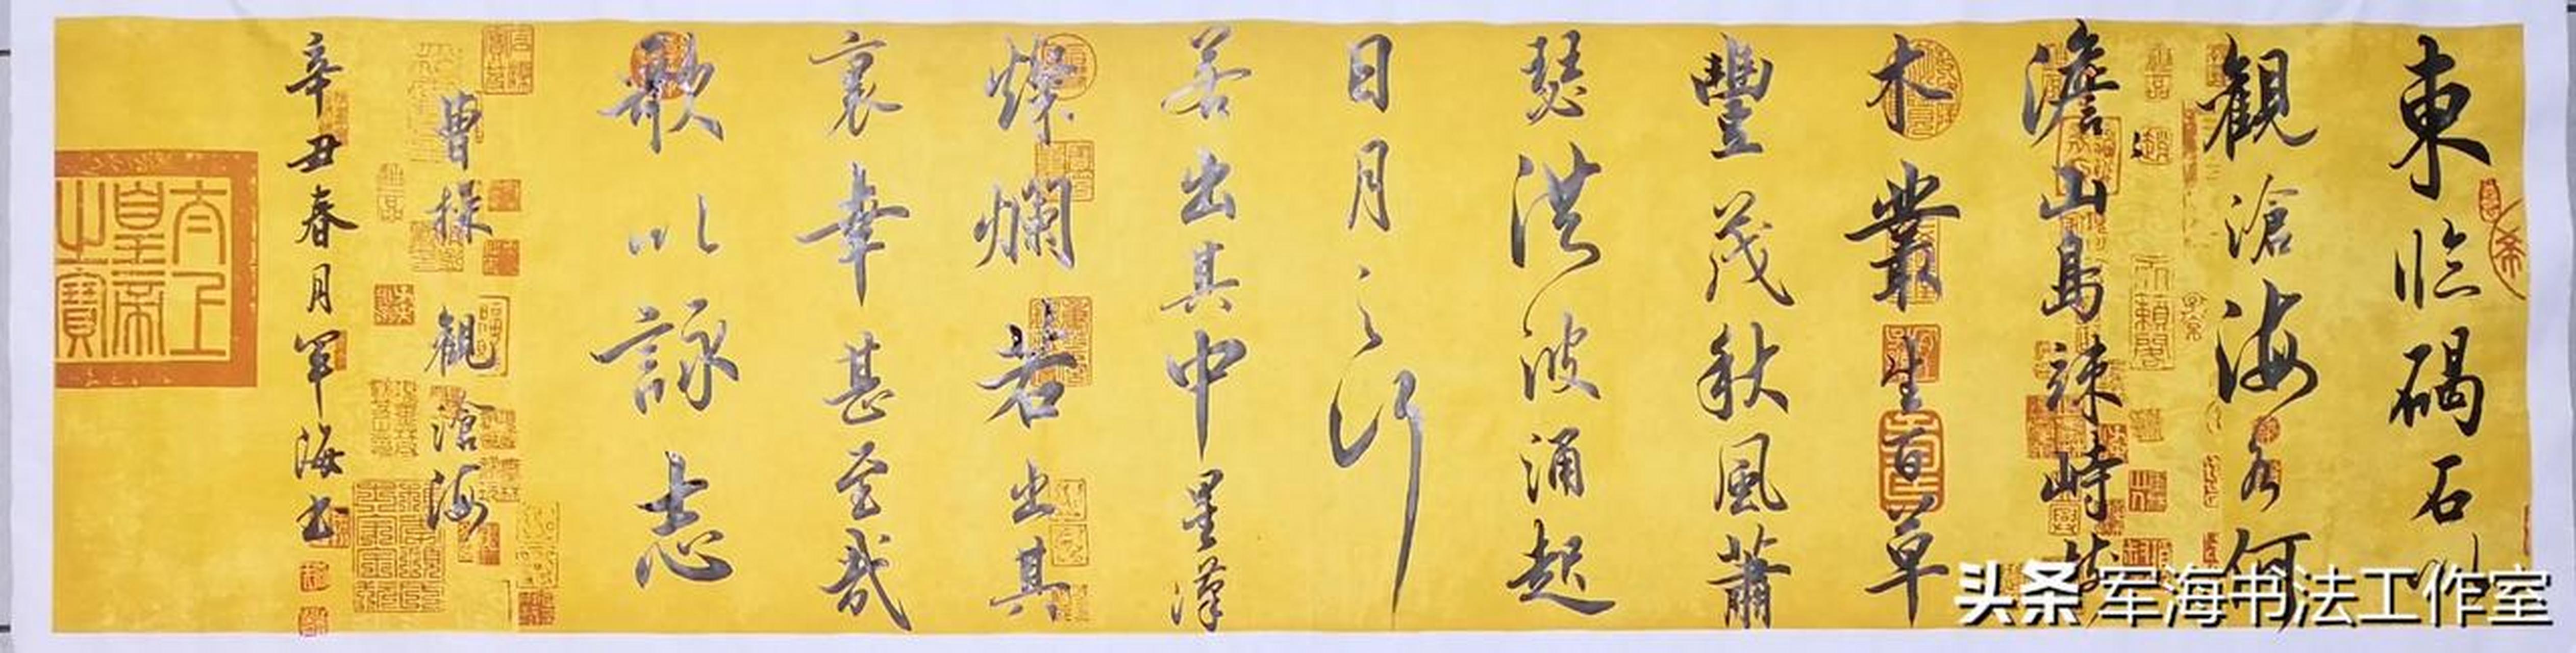 東臨碣石以
觀滄海水何
澹澹山島竦峙樹
木叢生百草
豐茂秋風蕭
瑟洪波涌起
日月之行
若出其中星漢
燦爛若出其
裏幸甚至哉
歌以詠志
曹操觀滄海
辛丑春月軍海书
太上皇帝之寶
头条 军海书法工作室